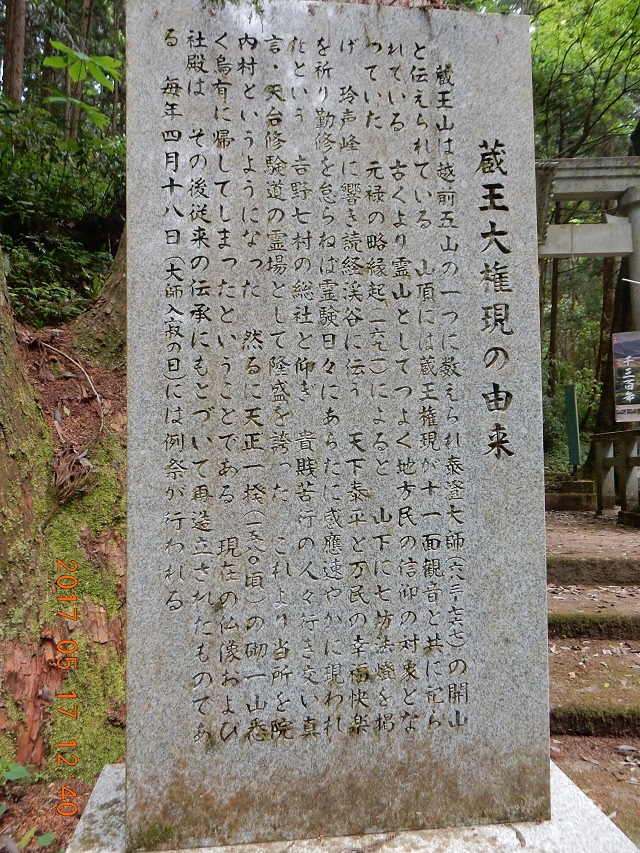 蔵王大権現の由来
蔵王山は越前五山の一つに数えられ泰澄大師(六八二-七六七)の開山
と伝えられている 山頂には蔵王権現が十一面観音と共に祀ら
れている 古くより霊山としてつよく地方民の信仰の対象とな
っていた 元禄の略縁起(一六九一)によると 山下に七坊法燈を掲
げ 玲声峰に響き読経渓谷に伝う 天下泰平と万民の幸福快楽
を祈り勤修を怠らねば霊験日々にあらたに感應速やかに現われ
たという 吉野七村の総社と仰ぎ 貴賎苦行の人々行き交い真
言・天台修験道の霊場として隆盛を誇った これより当所を院
内村というようになった 然るに天正一揆(一五八〇頃)の砌一山悉
く烏有に帰してしまったということである 現在の仏像および
社殿は その後従来の伝承にもとづいて再造立されたものであ
る 毎年四月十八日(大師入寂の日)には例祭が行われる
千三百年
2017 05 17 12:40